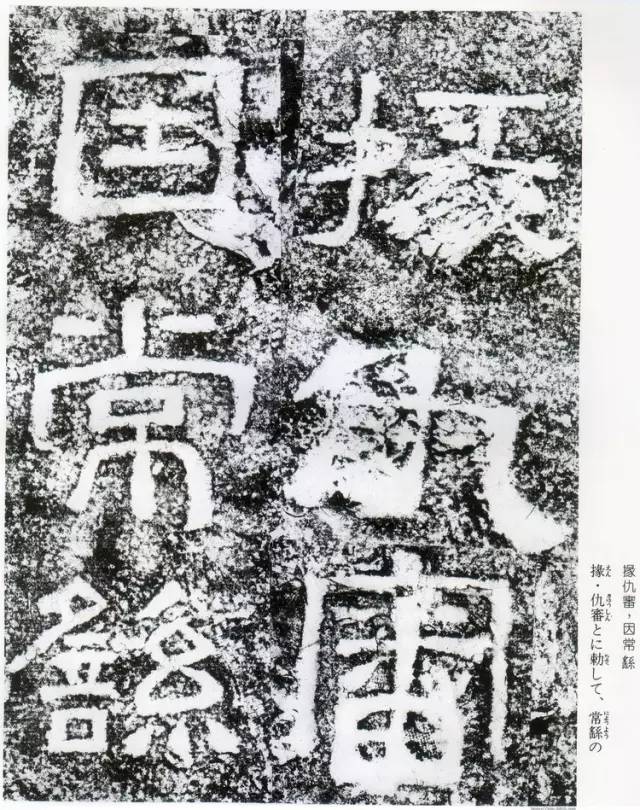 掾仇審，因常繇
掾・仇審とに勅して、常繇の
掾仇審
因常繇